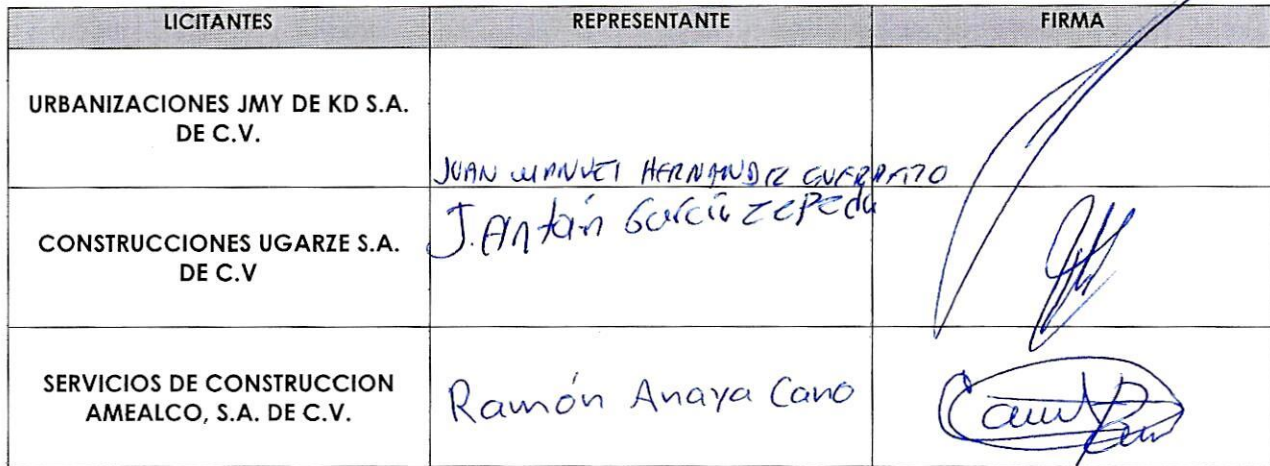 LICITANTES REPRESENTANTE FIRMA
URBANIZACIONES JMY DE KD S.A.
DE C.V.
JUAN MANUEL HERNANDEZ GUERRERO
CONSTRUCCIONES UGARZE S.A.
DE C.V
J. Antoín García Zepeda
SERVICIOS DE CONSTRUCCION
AMEALCO, S.A. DE C.V.
Ramón Anaya Cano